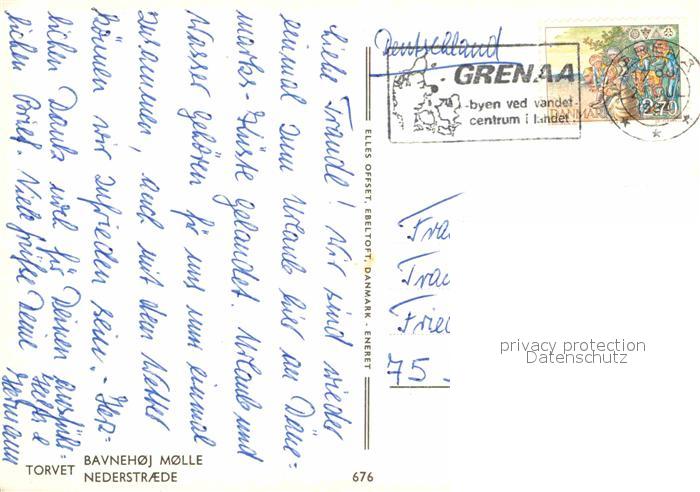 Liebe Traudl! Wir sind wieder
einmal zum Urlaub hier an Däne-
marks-Küste gelandet. Urlaub und
Wasser gehören für uns nun einmal
zusammen, auch mit dem Wetter
können wir zufrieden sein. - Herz-
lichen Dank noch für Deinen ausführ-
lichen Brief. Viele Grüße Deine
Hermann
TORVET
BAVNEHØJ MØLLE
NEDERSTRÆDE
676
ELLES OFFSET, EBELTOFT, DANMARK - ENERET
Deutschland
GRENAA
-byen ved vandet-
centrum i landet
DANMARK
270
Frau
Trau
Fried
75
privacy protection
Datenschutz